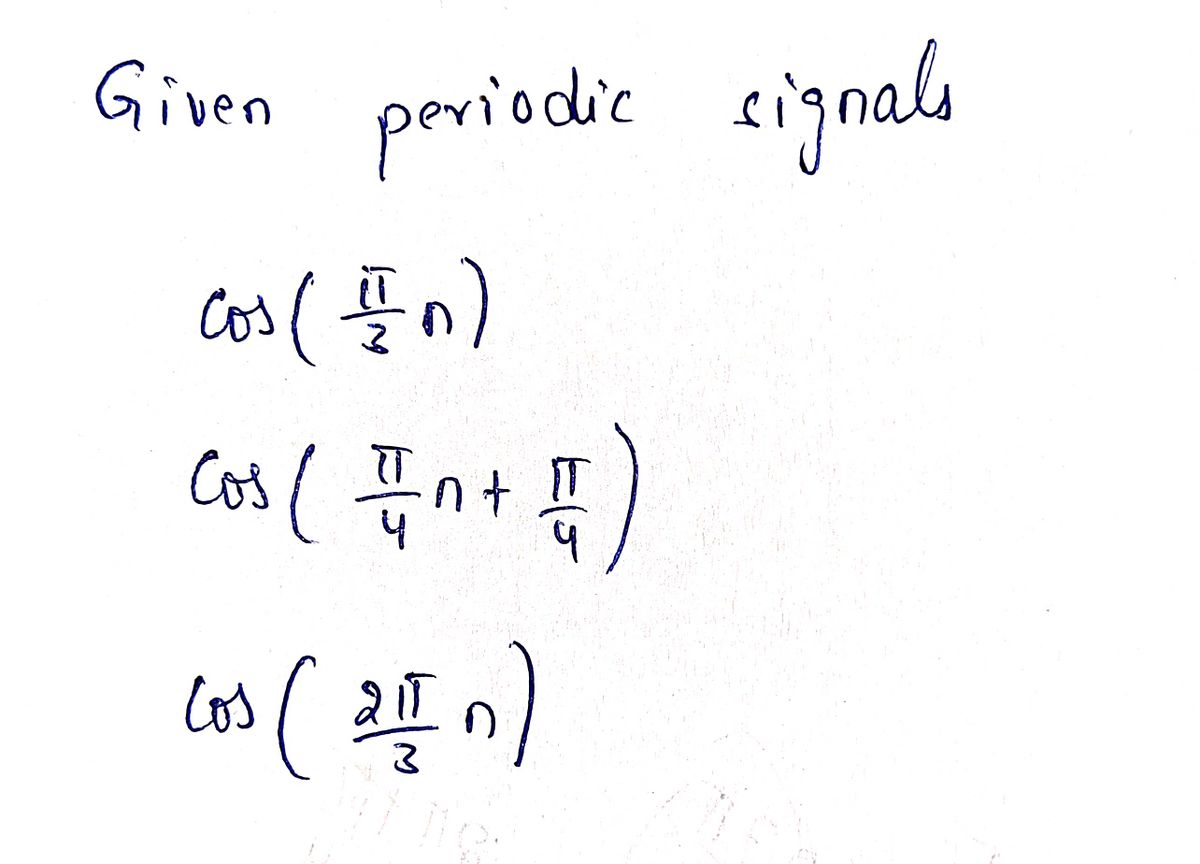 Given periodic signals
cos(π/3 n)
cos(π/4 n + π/4)
cos(2π/3 n)